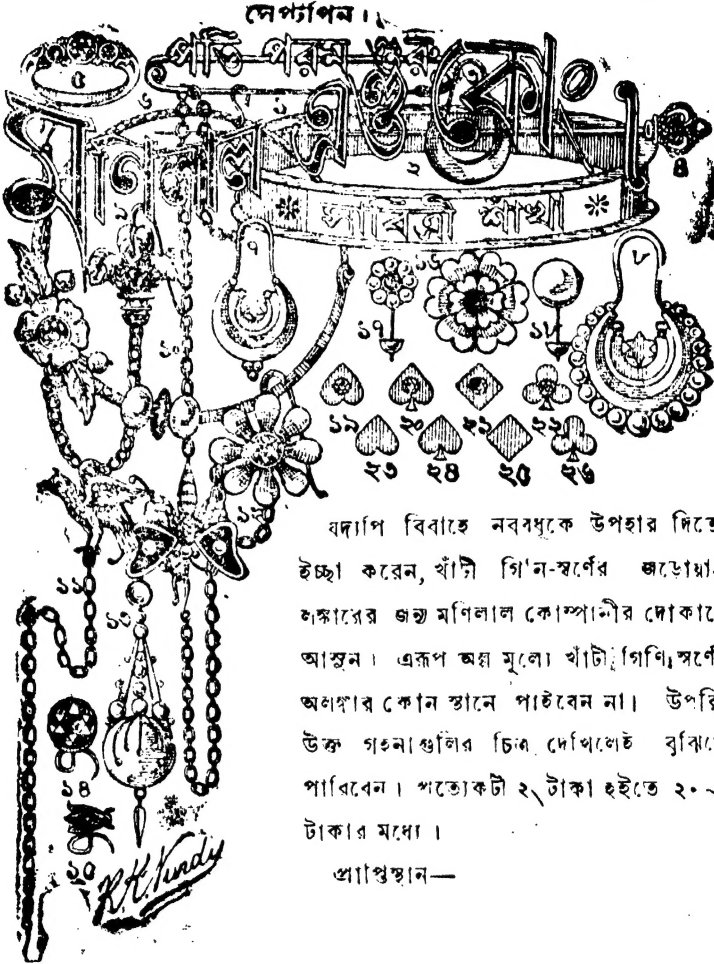 সেপ্টাপিন।
পতি পরম গুরু
মণিলাল এণ্ড কোং
সাবিত্রী শাঁখা
৫
৬
২
৪
৯
৭
৮
১০
১৬
১৭
১৮
১৯ ২০ ২১ ২২
২৩ ২৪ ২৫ ২৬
১২
১১
১৩
১৪
১৫
যদ্যপি বিবাহে নববধুকে উপহার দিতে
ইচ্ছা করেন, খাঁটী গি'ন-স্বর্ণের জড়োয়া
লঙ্কারের জন্য মণিলাল কোম্পানীর দোকানে
আসুন। এরূপ অল্প মূল্যে খাঁটী গিণি স্বর্ণে
অলঙ্কার কোন স্থানে পাইবেন না। উপরি
উক্ত গহনাগুলির চিত্র দেখিলেই বুঝিতে
পারিবেন। প্রত্যেকটী ২৲ টাকা হইতে ২০৲
টাকার মধ্যে।
প্রাপ্তিস্থান—
R.K. Nundy